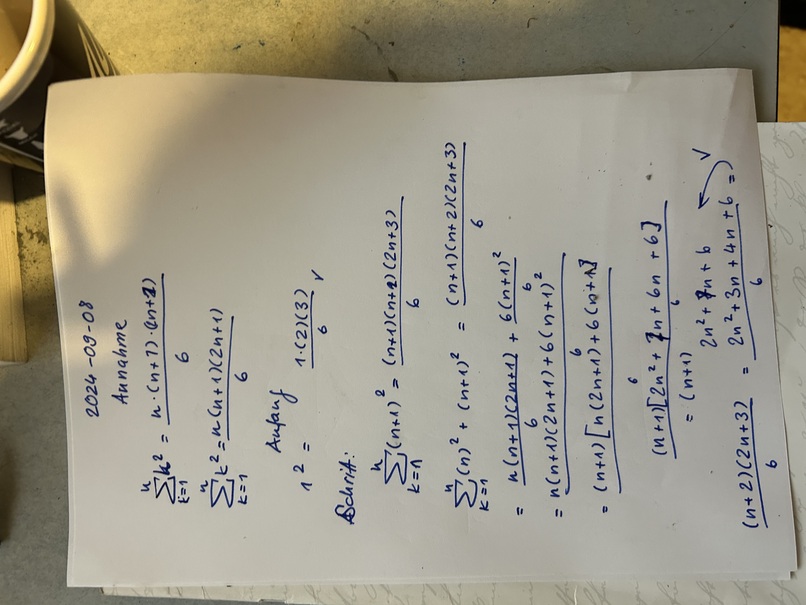 2024-09-08
Annahme
n∑k=1 k² = n·(n+1)·(n+2) / 6
n∑k=1 k² = n(n+1)(2n+1) / 6
Anfang
1² = 1·(2)(3) / 6 ✓
Schritt:
n∑k=1 (n+1)² = (n+1)(n+2)(2n+3) / 6
n∑k=1 (n)² + (n+1)² = (n+1)(n+2)(2n+3) / 6
= n(n+1)(2n+1) / 6 + 6(n+1)² / 6
= n(n+1)(2n+1)+6(n+1)² / 6
= (n+1)[n(2n+1)+6(n+1)] / 6
(n+1)[2n²+1n+6n+6] / 6
= (n+1)
2n²+7n+6
(n+2)(2n+3) / 6 = 2n²+3n+4n+6 / 6 = ✓